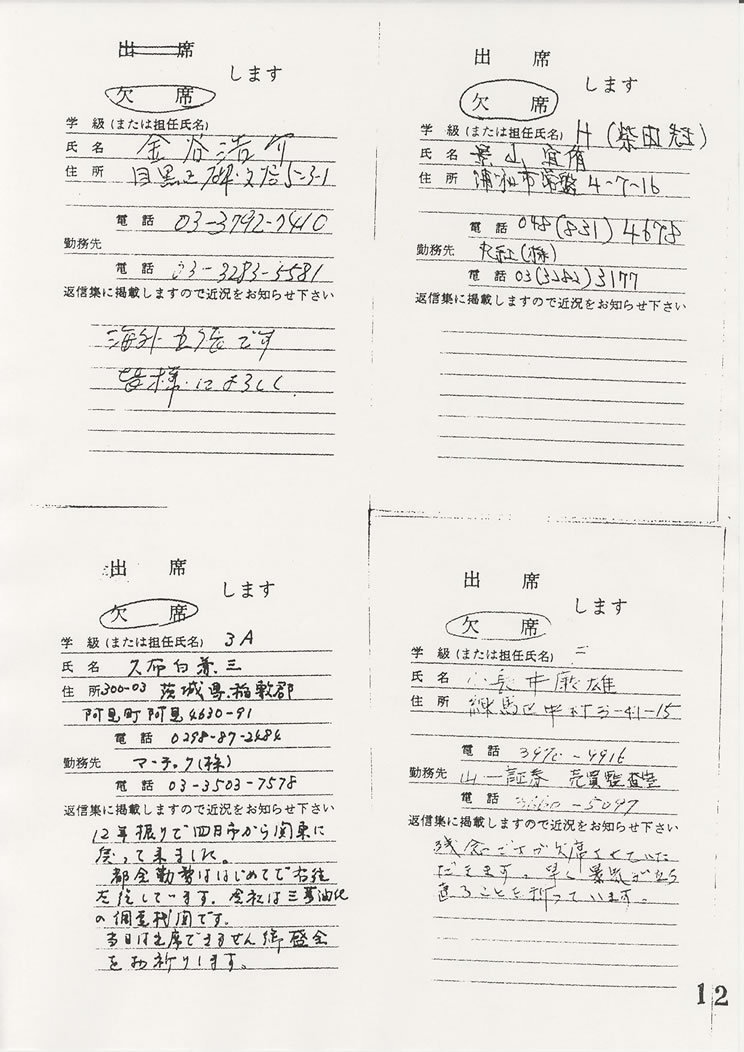 出 席
します
欠 席
学 級 (または担任氏名)
氏 名 金谷浩介
住 所 目黒区 5-3-1
電 話 03-3792-7410
勤務先
電 話 03-3283-5581
返信集に掲載しますので近況をお知らせ下さい
海外出張です
皆様によろしく
出 席
します
欠 席
学 級 (または担任氏名) H (柴田先生)
氏 名 景山 宜脩
住 所 浦和市常盤 4-7-16
電 話 048 (831) 4678
勤務先 丸紅(株)
電 話 03 (3282) 3177
返信集に掲載しますので近況をお知らせ下さい
出 席
します
欠 席
学 級 (または担任氏名) 3A
氏 名 久布白兼三
住 所 300-03 茨城県稲敷郡
阿見町阿見4630-91
電 話 0298-87-2484
勤務先 マーテック(株)
電 話 03-3503-7578
返信集に掲載しますので近況をお知らせ下さい
12年振りで四日市から関東に
戻って来ました。
都会勤務ははじめてで右往
左往しています。会社は三菱油化
の調査機関です。
当日は出席できません御盛会
をお祈りします。
出 席
します
欠 席
学 級 (または担任氏名)
氏 名 小長井敏雄
住 所 練馬区中村3-41-15
電 話 3970-4916
勤務先 山一証券 売買監査室
電 話 3660-5097
返信集に掲載しますので近況をお知らせ下さい
残念ですが欠席させていた
だきます。早く景気が立ち
直ることを祈っています。
12